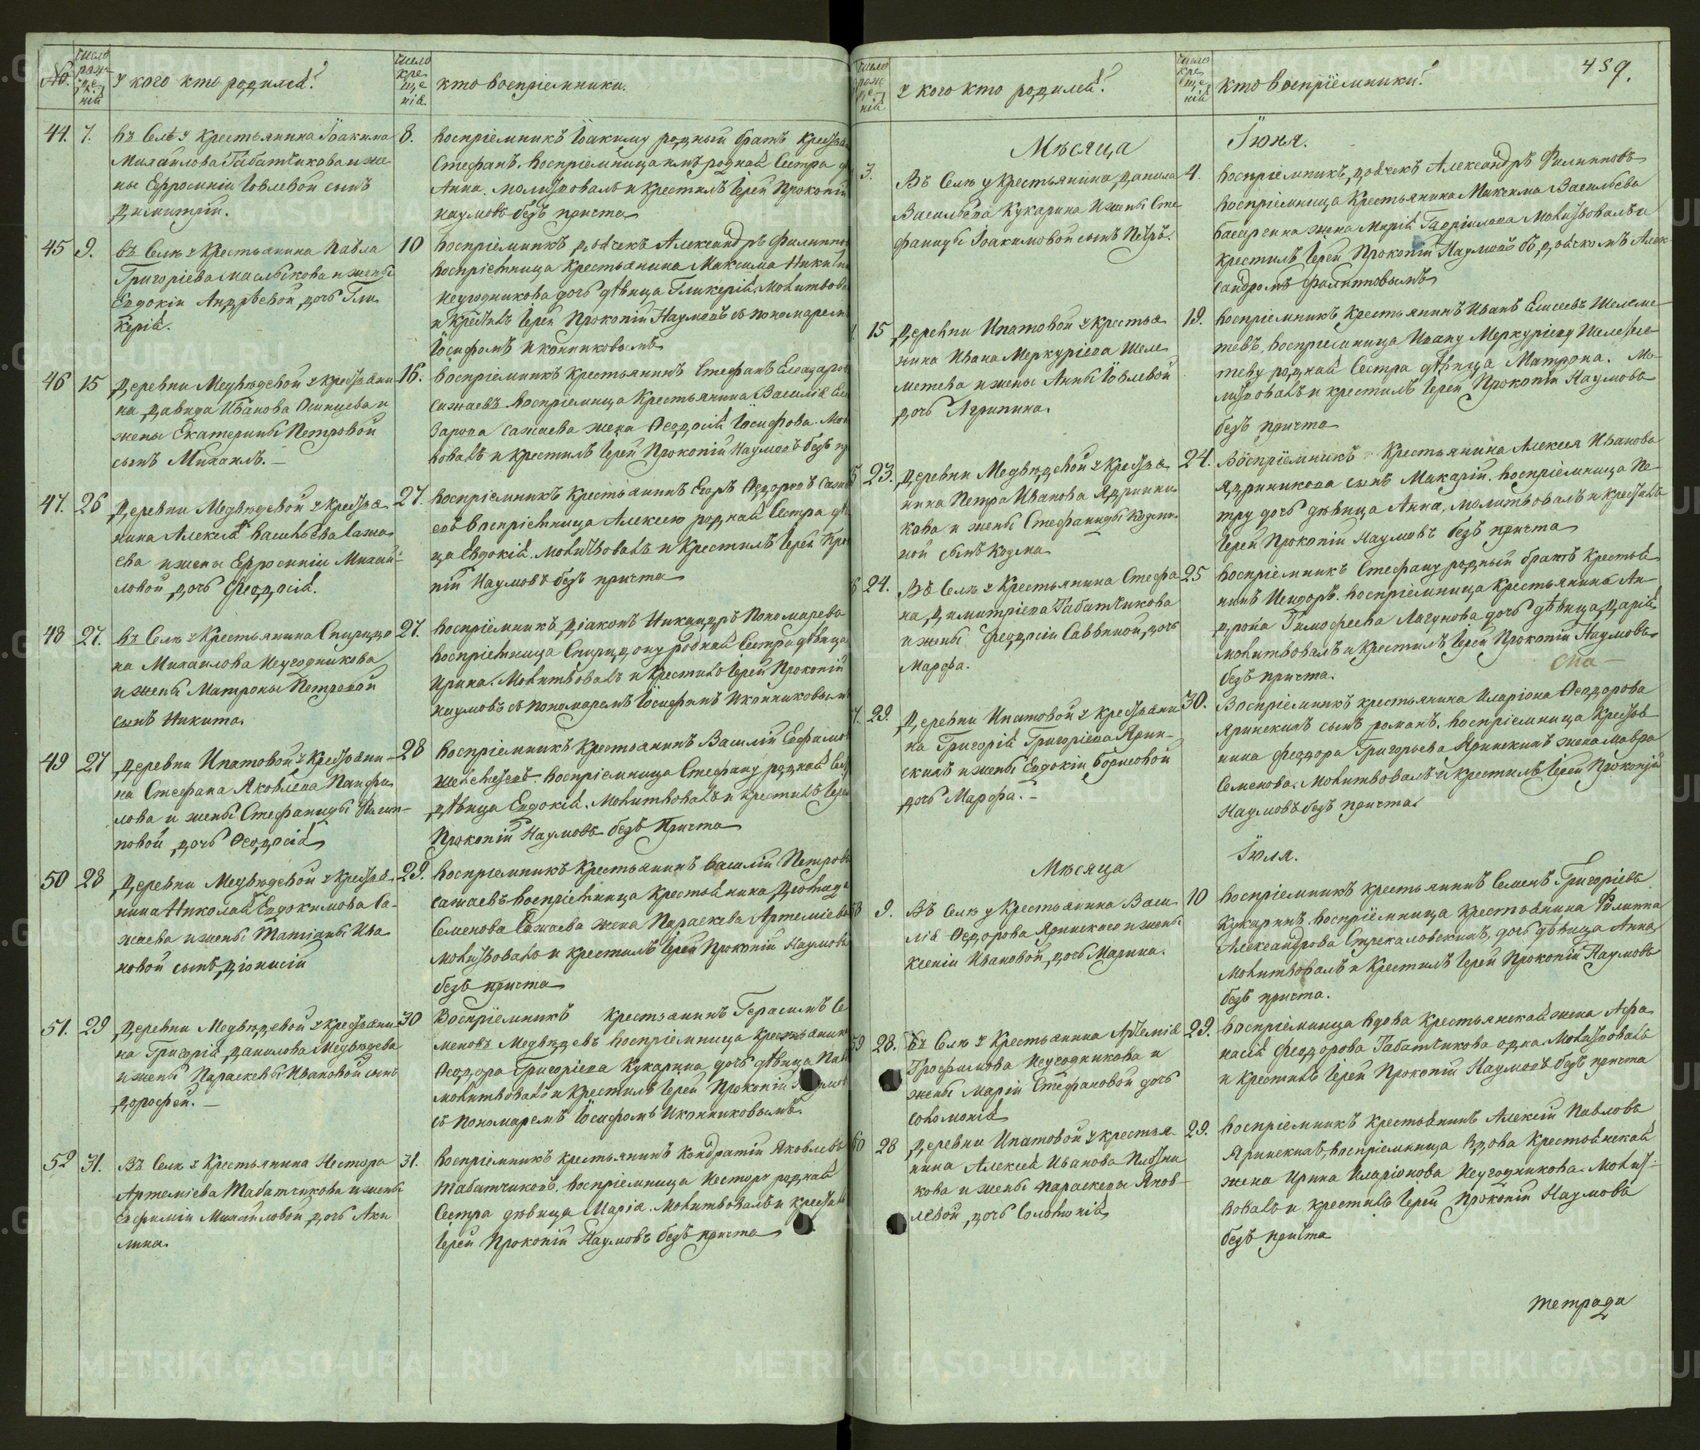 №.
Число рож-де-ній
У кого кто родился?
Число кре-ще-нія.
кто воспріемники.
44.
7.
Въ Селѣ у Крестьянина Іоакима
Михайлова Табатчикова и же-
ны Ефросиніи Іовлевой сынъ
Димитрій.
8.
Воспріемникъ Іоакиму родный братъ
Стефанъ. Воспріемница имъ родная Сестра
Анна. молитвовалъ и крестилъ Іерей Прокопій
Наумовъ безъ причта
45
9.
Въ Селѣ у Крестьянина Павла
Григоріева Маслыкова и жены
Евдокіи Андрѣевой, дочь Гли-
керія.
10
Воспріемникъ дьячекъ Александръ
Воспріемница Крестьянина Максима
Неугодникова дочь дѣвица Гликерія.
и Крестилъ Іерей Прокопій Наумовъ съ пономаремъ
Іосифомъ Иконниковымъ
46
15
Деревни Медвѣдевой у
на Давида Иванова Осинцева и
жены Екатерины Петровой
сынъ Михаилъ. —
16.
Воспріемникъ Крестьянинъ Стефанъ
Сажаевъ Воспріемница Крестьянина Василія
жена Ѳеодосія Іосифова.
и крестилъ Іерей Прокопій Наумовъ безъ
47.
26
Деревни Медвѣдевой у
нина Алексія Васильева Сажа-
ева и жены Ефросиніи Михай-
ловой, дочь Ѳеодосія.
27.
Воспріемникъ Крестьянинъ Егоръ Ѳедоровъ
Воспріемница Алексею родная Сестра
Евдокія. Молитвовалъ и Крестилъ Іерей
Наумовъ безъ причта
48
27.
Въ Селѣ у Крестьянина Спиридо-
на Михайлова Неугодникова
и жены Матроны Петровой
сынъ Никита.
27.
Воспріемникъ, Діаконъ Никандръ Пономаревъ
Воспріемница Спиридону родная Сестра дѣвица
Ирина. Молитвовалъ и Крестилъ Іерей Прокопій
Наумовъ съ пономаремъ Іосифомъ Иконниковымъ
49
27
Деревни Ипатовой у
на Стефана Яковлева Панфи-
лова и жены Стефаниды
повой, дочь Ѳеодосія
28
Воспріемникъ Крестьянинъ Василій
Воспріемница Стефану родная
дѣвица Евдокія. Молитвовалъ и крестилъ
Прокопій Наумовъ безъ Причта
50
28
Деревни Медвѣдевой у
нина Николая Евдокимова Са-
жаева и жены Татіаны Ива-
новой сынъ Діонисій
29.
Воспріемникъ Крестьянинъ Василій Петровъ
Сажаевъ Воспріемница Крестьянина
Семенова Сажаева жена Параскева
Молитвовалъ и крестилъ Іерей Прокопій Наумовъ
безъ причта
51.
29
Деревни Медвѣдевой у
на Григорія Данилова Медвѣдева
и жены Параскевы Ивановой сынъ
Дорофей. —
30
Воспріемникъ крестьянинъ Герасимъ Се-
меновъ Медвѣдевъ Воспріемница
Ѳеодора Григоріева Кукарина дочь дѣвица
молитвовалъ и Крестилъ Іерей Прокопій
съ пономаремъ Іосифомъ Иконниковымъ.
52
31.
Въ Селѣ у Крестьянина Нестора
Артеміева Табатчикова и жены
Евфиміи Михайловой, дочь Аки-
лина.
31.
Воспріемникъ крестьянинъ Кондратій Яковлевъ
Табатчиковъ. Воспріемница Нестору родная
Сестра дѣвица Марія. Молитвовалъ и
Іерей Прокопій Наумовъ безъ причта
Число рож-де-ній
У кого кто родился?
Число кре-ще-нія
кто воспріемники?
439.
Мѣсяца
Іюня.
3.
Въ Селѣ у Крестьянина Данила
Васильева Кукарина и жены Сте-
фаниды Іоакимовой сынъ Петръ.
4.
Воспріемникъ, дьячекъ Александръ Филипповъ
Воспріемница Крестьянина Максима Васильева
жена Марія Молитвовалъ и
Крестилъ Іерей Прокопій Наумовъ съ дьячкомъ Алек-
сандромъ Филипповымъ
15
Деревни Ипатовой у крестья-
нина Ивана Меркуріева Шеле-
метева и жены Анны Іовлевой
дочь Агрипина.
19.
Воспріемникъ Крестьянинъ Иванъ Елисеевъ Шелеме-
тевъ, Воспріемница Ивану Меркуріеву Шелеме-
теву родная Сестра дѣвица Матрона. Мо-
литвовалъ и крестилъ Іерей Прокопій Наумовъ
безъ причта
23.
Деревни Медвѣдевой у
нина Петра Иванова Ядринни-
кова и жены Стефаниды Козми-
ной сынъ Козма
24.
Воспріемникъ Крестьянина Алексея Иванова
Ядринникова сынъ Макарій. Воспріемница Пе-
тру дочь дѣвица Анна, молитвовалъ и крестилъ
Іерей Прокопій Наумовъ безъ причта
24.
Въ Селѣ у Крестьянина Стефа-
на Димитріева Табатчикова
и жены Ѳеодосіи Саввиной, дочь
Марфа.
25
Воспріемникъ Стефану родный братъ Крестья-
нинъ Исидоръ. Воспріемница Крестьянина Ан-
дрона Тимофеева Лагунова дочь дѣвица Дарія
молитвовалъ и крестилъ Іерей Прокопій Наумовъ
безъ причта.
29.
Деревни Ипатовой у
на Григорія Григоріева Ярин-
скихъ и жены Евдокіи Борисовой
дочь Марфа. —
30.
Воспріемникъ крестьянина Иларіона Ѳеодорова
Яринскихъ сынъ Романъ. Воспріемница
нина Ѳеодора Григорьева Яринскихъ жена Мавра
Семенова. Молитвовалъ и крестилъ Іерей Прокопій
Наумовъ безъ причта.
Мѣсяца
Іюля.
9.
Въ Селѣ у Крестьянина Васи-
лія Ѳедорова Яринского и жены
Ксеніи Ивановой, дочь Марина.
10
Воспріемникъ крестьянинъ Семенъ Григоріевъ
Кукаринъ, Воспріемница Крестьянина Филиппа
Александрова Стрекаловскихъ, дочь дѣвица Анна
Молитвовалъ и Крестилъ Іерей Прокопій Наумовъ
безъ причта.
59
28.
Въ Селѣ у Крестьянина Артемія
Трофимова Неугодникова и
жены Маріи Стефановой дочь
Соломонія
29.
Воспріемница вдова Крестьянская жена Афа-
насія Ѳеодорова Табатчикова одна. Молитвовалъ
и Крестилъ Іерей Прокопій Наумовъ безъ причта
60
28
Деревни Ипатовой у крестья-
нина Алексея Иванова Плотни-
кова и жены Параскевы Яков-
левой, дочь Соломонія
29.
Воспріемникъ Крестьянинъ Алексій Павловъ
Яринскихъ, воспріемница Вдова Крестьянская
жена Ирина Иларіонова Неугодникова. Молит-
вовалъ и крестилъ Іерей Прокопій Наумовъ
безъ причта
тетради
METRIKI.GASO-URAL.RU
METRIKI.GASO-URAL.RU